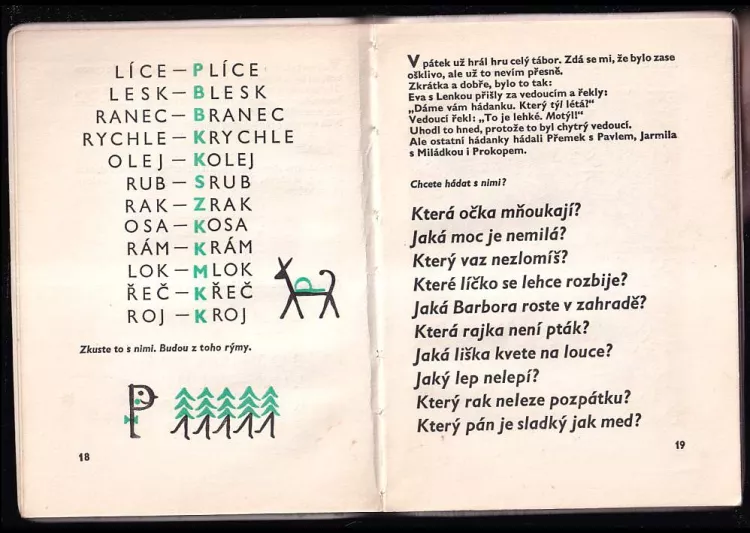 LÍCE – PLÍCE
LESK – BLESK
RANEC – BRANEC
RYCHLE – KRYCHLE
OLEJ – KOLEJ
RUB – SRUB
RAK – ZRAK
OSA – KOSA
RÁM – KRÁM
LOK – MLOK
ŘEČ – KŘEČ
ROJ – KROJ
Zkuste to s nimi. Budou z toho rýmy.
18
V pátek už hrál hru celý tábor. Zdá se mi, že bylo zase
ošklivo, ale už to nevím přesně.
Zkrátka a dobře, bylo to tak:
Eva s Lenkou přišly za vedoucím a řekly:
„Dáme vám hádanku. Který týl létá?"
Vedoucí řekl: „To je lehké. Motýl!"
Uhodl to hned, protože to byl chytrý vedoucí.
Ale ostatní hádanky hádali Přemek s Pavlem, Jarmila
s Miládkou i Prokopem.
Chcete hádat s nimi?
Která očka mňoukají?
Jaká moc je nemilá?
Který vaz nezlomíš?
Které líčko se lehce rozbije?
Jaká Barbora roste v zahradě?
Která rajka není pták?
Jaká liška kvete na louce?
Jaký lep nelepí?
Který rak neleze pozpátku?
Který pán je sladký jak med?
19